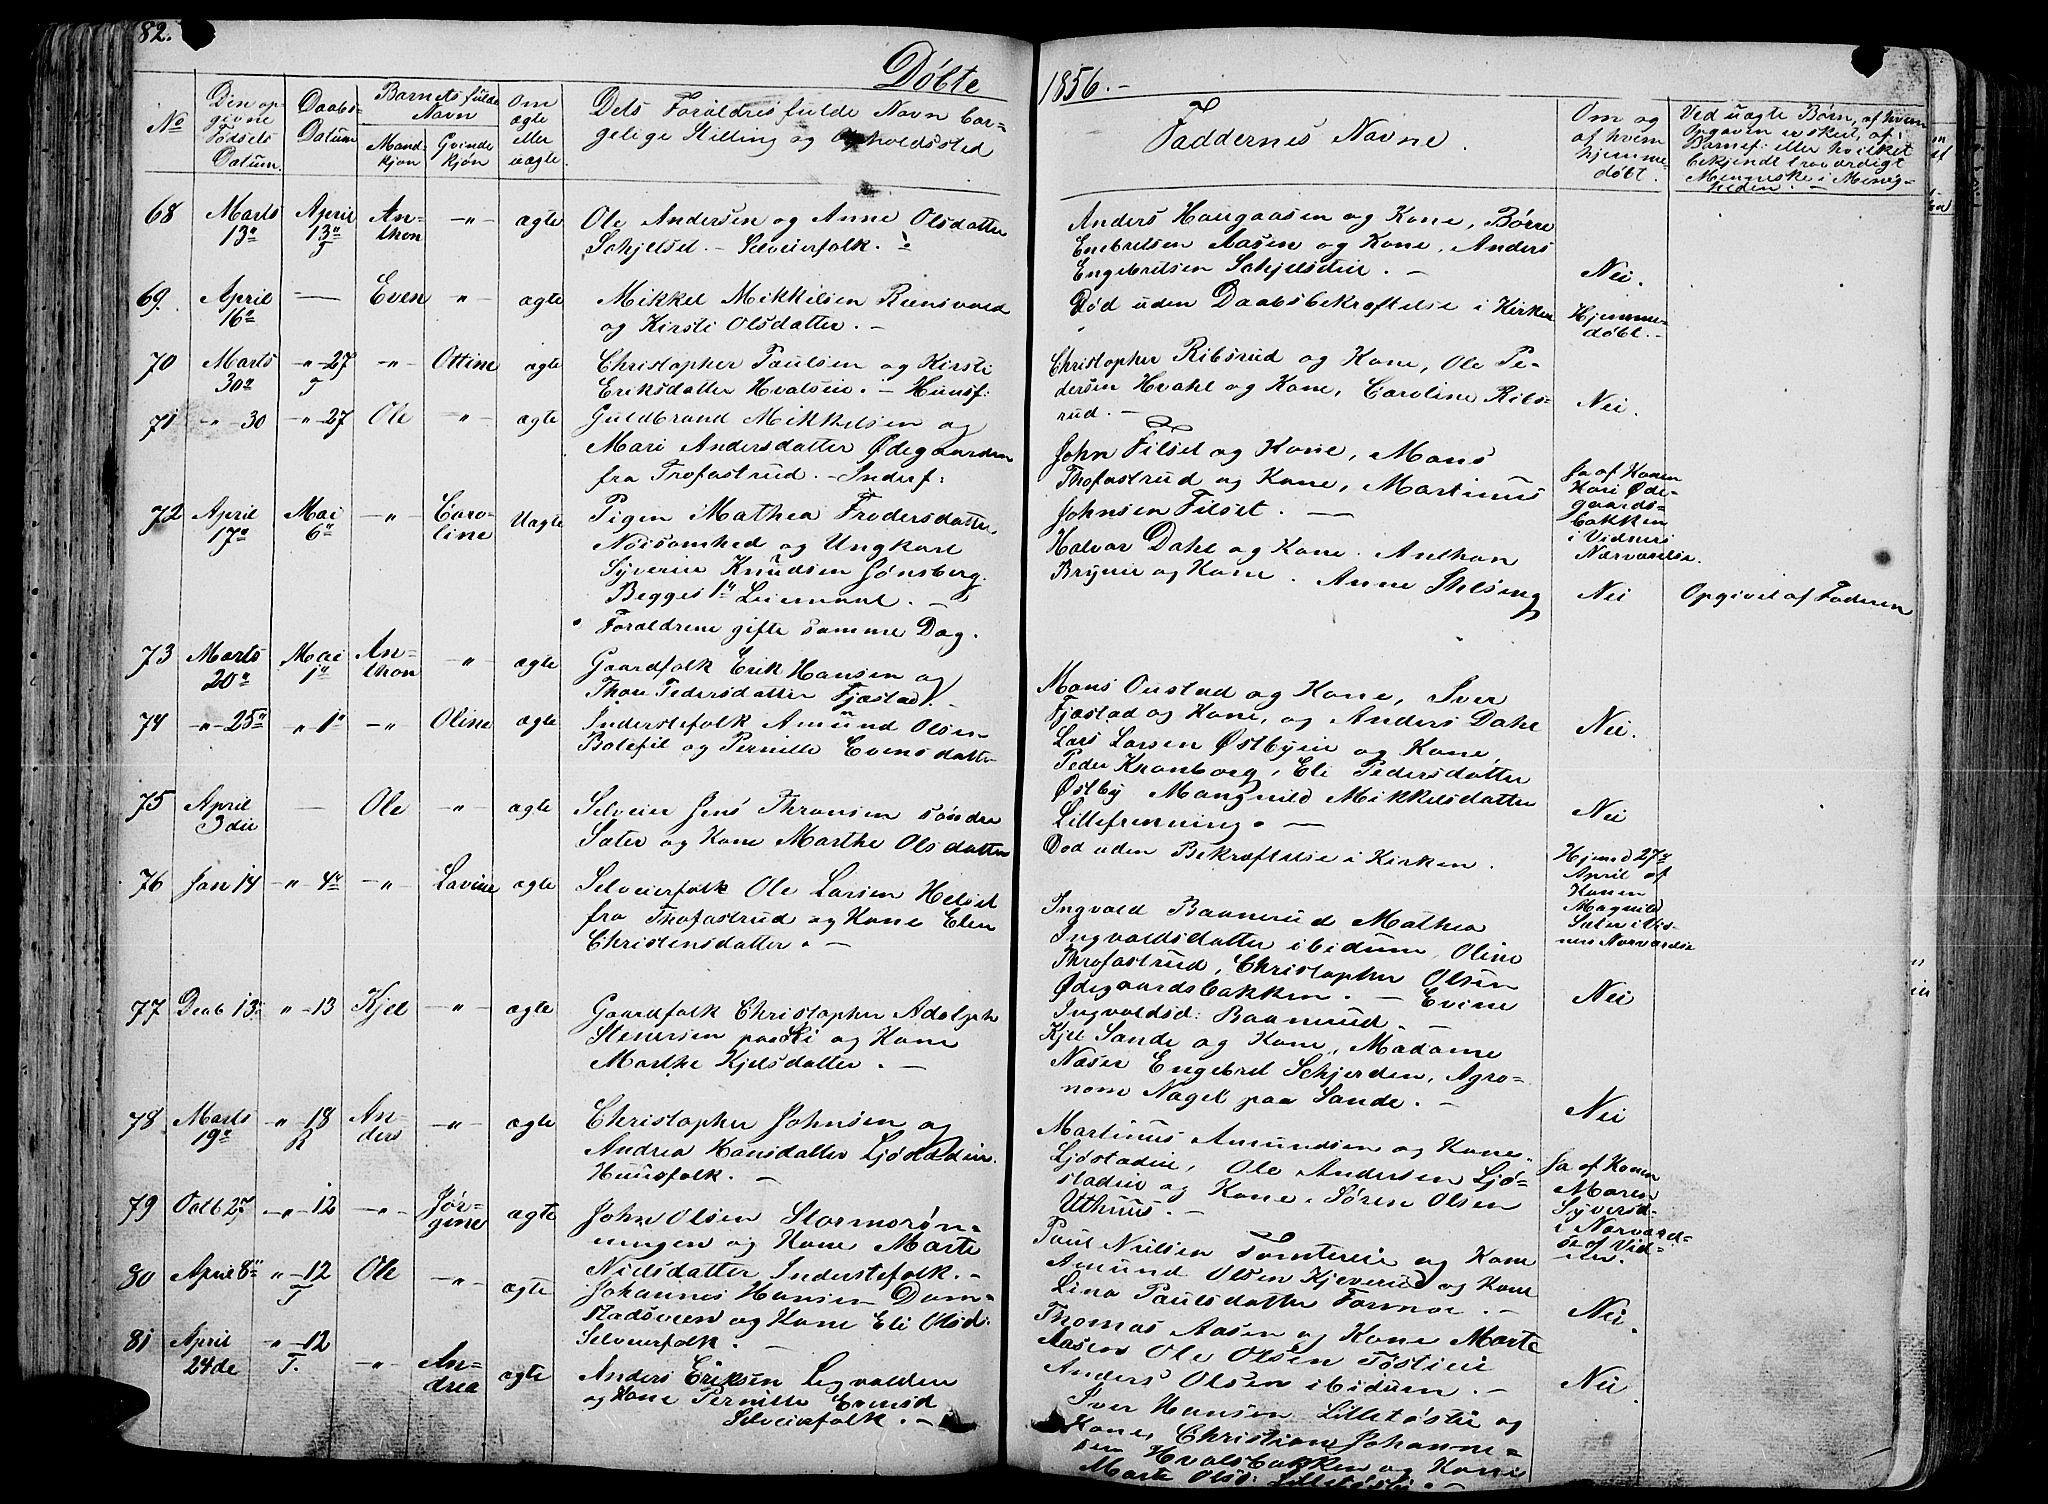 82.
Døbte 1856. -
No
Den op-
givne
Fødsels
Datum.
Daabs-
Datum
Barnets fulde
Navn
Mand-
kjøn
Qvinde
kjøn
Om
ægte
eller
uægte.
Dets Forældres fulde Navn bor-
gelige Stilling og Opholdssted
Faddernes Navne.
Om og
af hvem
hjemme
døbt.
Ved uægte Børn, af hvem
Opgaven er skeet, af
Barnef. eller hvilket
bekjendt troværdigt
Menneske i Menig-
heden. -
68 Marts 13de April 13de T An-thon -"- ægte
Ole Andersen og Anne Olsdatter
Schjelset. - Selveierfolk.
Anders Haugaasen og Kone, Børre
Enebretsen Aasen og Kone, Anders
Engebretsen Schjelseteie. - Nei.
69. April 16de — Even -"- ægte
Mikkel Mikkelsen Rensvold
og Kirsti Olsdatter. -
Død uden Daabsbekræftelse i Kirken
Hjemme-
døbt. -
70 Marts 30de -"- 27 T -"- Ottine ægte
Christopher Paulsen og Kirsti
Eriksdatter Hvalseie. - Huusf:
Christopher Ribsrud og Kone, Ole Pe-
dersen Hvahl og Kone, Caroline Ribs-
rud. - Nei.
71 -"- 30 -"- 27 Ole -"- ægte
Guldbrand Mikkelsen og
Mari Andersdatter Ødegaarden
fra Trofastrud. - Inderf:
John Filset og Kone, Mons
Thofastrud og Kone, Martinus
Johnsen Filset. —
Ja af Konen
Kari Øde-
gaards-
bakken
i Vidners
Nærværelse.
72 April 17de Mai 6te -"- Caro-line Uægte
Pigen Mathea Fredersdatter
Nøisomhed og Ungkarl
Syverin Knudsen Jønsberg.
Begges 1ste Leiermaal. -
Forældrene gifte samme Dag.
Halvor Dahl og Kone. Anthon
Brynie og Kone. Anne Stelsing
Nei
Opgivet af Faderen
73 Marts 20de Mai 1ste An-thon -"- ægte
Gaardfolk Erik Hansen og
Thon Pedersdatter Fjæstad. -
Mons Oustad og Kone, Iver
Fjæstad og Kone, og Anders Dahl
Nei.
74 -"- 25de -"- 1ste -"- Oline ægte
Inderstefolk Amund Olsen
Bolefil og Pernille Evensdatter
Lars Larsen Østbyeie og Kone,
Peder Kronborg, Eli Pedersdatter
Østby Mangnild Mikkelsdatter
Lillefrenning. - Nei
75 April 3die — Ole -"- ægte
Selveier Jens Thronsen søndre
Sæter og Kone Marthe Olsdatter
Død uden Bekræftelse i Kirken.
Hjemd 27de
April af
Konen
Magnild
Sæter i Vid-
ners Nærværelse
76 Jan 14 -"- 4de -"- Lavine ægte
Selveierfolk Ole Larsen Helset
fra Thofastrud og Kone Elen
Christensdatter. -
Ingvald Baanerud Mathea
Ingvaldsdatter ibidum, Oline
Throfastrud, Christopher Olsen
Ødegaardsbakken. - Evine
Ingvaldsd: Baanerud. -
Nei
77 Decb 13de -"- 13 Kjel -"- ægte
Gaardfolk Christopher Adolph
Stenersen paa Li og Kone
Marthe Kjelsdatter. -
Kjel Sande og Kone, Madame
Næser Engebret Schjerden, Agro-
nom Nagel paa Sande. -
Nei
78 Marts 19de -"- 18 R An-ders -"- ægte
Christopher Johnsen og
Andrea Hansdatter Ljøstadeie.
Huusfolk. -
Martinus Amundsen og Kone
Ljøstadeie, Ole Andersen Ljø-
stadeie og Kone. Søren Olsen
Uthuus. -
Ja af Konen
Maren
Syversd-
i Nærværel-
se af Vid-
ner.
79 Octb 27 -"- 12 -"- Jør-gine ægte
John Olsen Stormorøn-
ningen og Kone Marte
Nielsdatter Inderstefolk. -
Paul Nielsen Tomtereie og Kone
Amund Olsen Kjeverud og Kone
Lina Paulsdatter Formoe. -
Nei.
80 April 8de -"- 12 T Ole -"- ægte
Johannes Hansen Dam-
stadsveen og Kone Eli Olsd:
Selveierfolk. -
Thomas Aasen og Kone Marte
Aasen Ole Olsen Tøstieie
Anders Olsen ibidum. -
Nei
81 April 24de -"- 12 T. -"- An-drea ægte
Anders Eriksen Ligvolden
og Kone Pernille Evensd
Selveierfolk. -
Iver Hansen Lilletøstie og
Kone, Christian Johanne-
sen Hvalsbakken og Kone
Marte Olsd: Lilletøstie